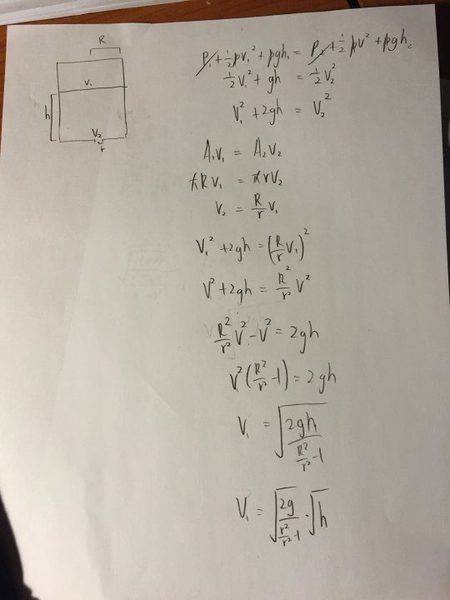 R
V₁
h
V₂
r
P₁ + ½ρv₁² + ρgh₁ = P₂ + ½ρv² + ρgh₂
½v₁² + gh = ½v₂²
V₁² + 2gh = V₂²
A₁v₁ = A₂v₂
πRv₁ = πrv₂
V₂ = R/r v₁
V₁² + 2gh = (R/r v₁)²
V² + 2gh = R²/r² v²
R²/r² v² - v² = 2gh
v²(R²/r² - 1) = 2gh
V₁ = √(2gh/(R²/r² - 1))
V₁ = √(2g/(r²/r² - 1)) · √h